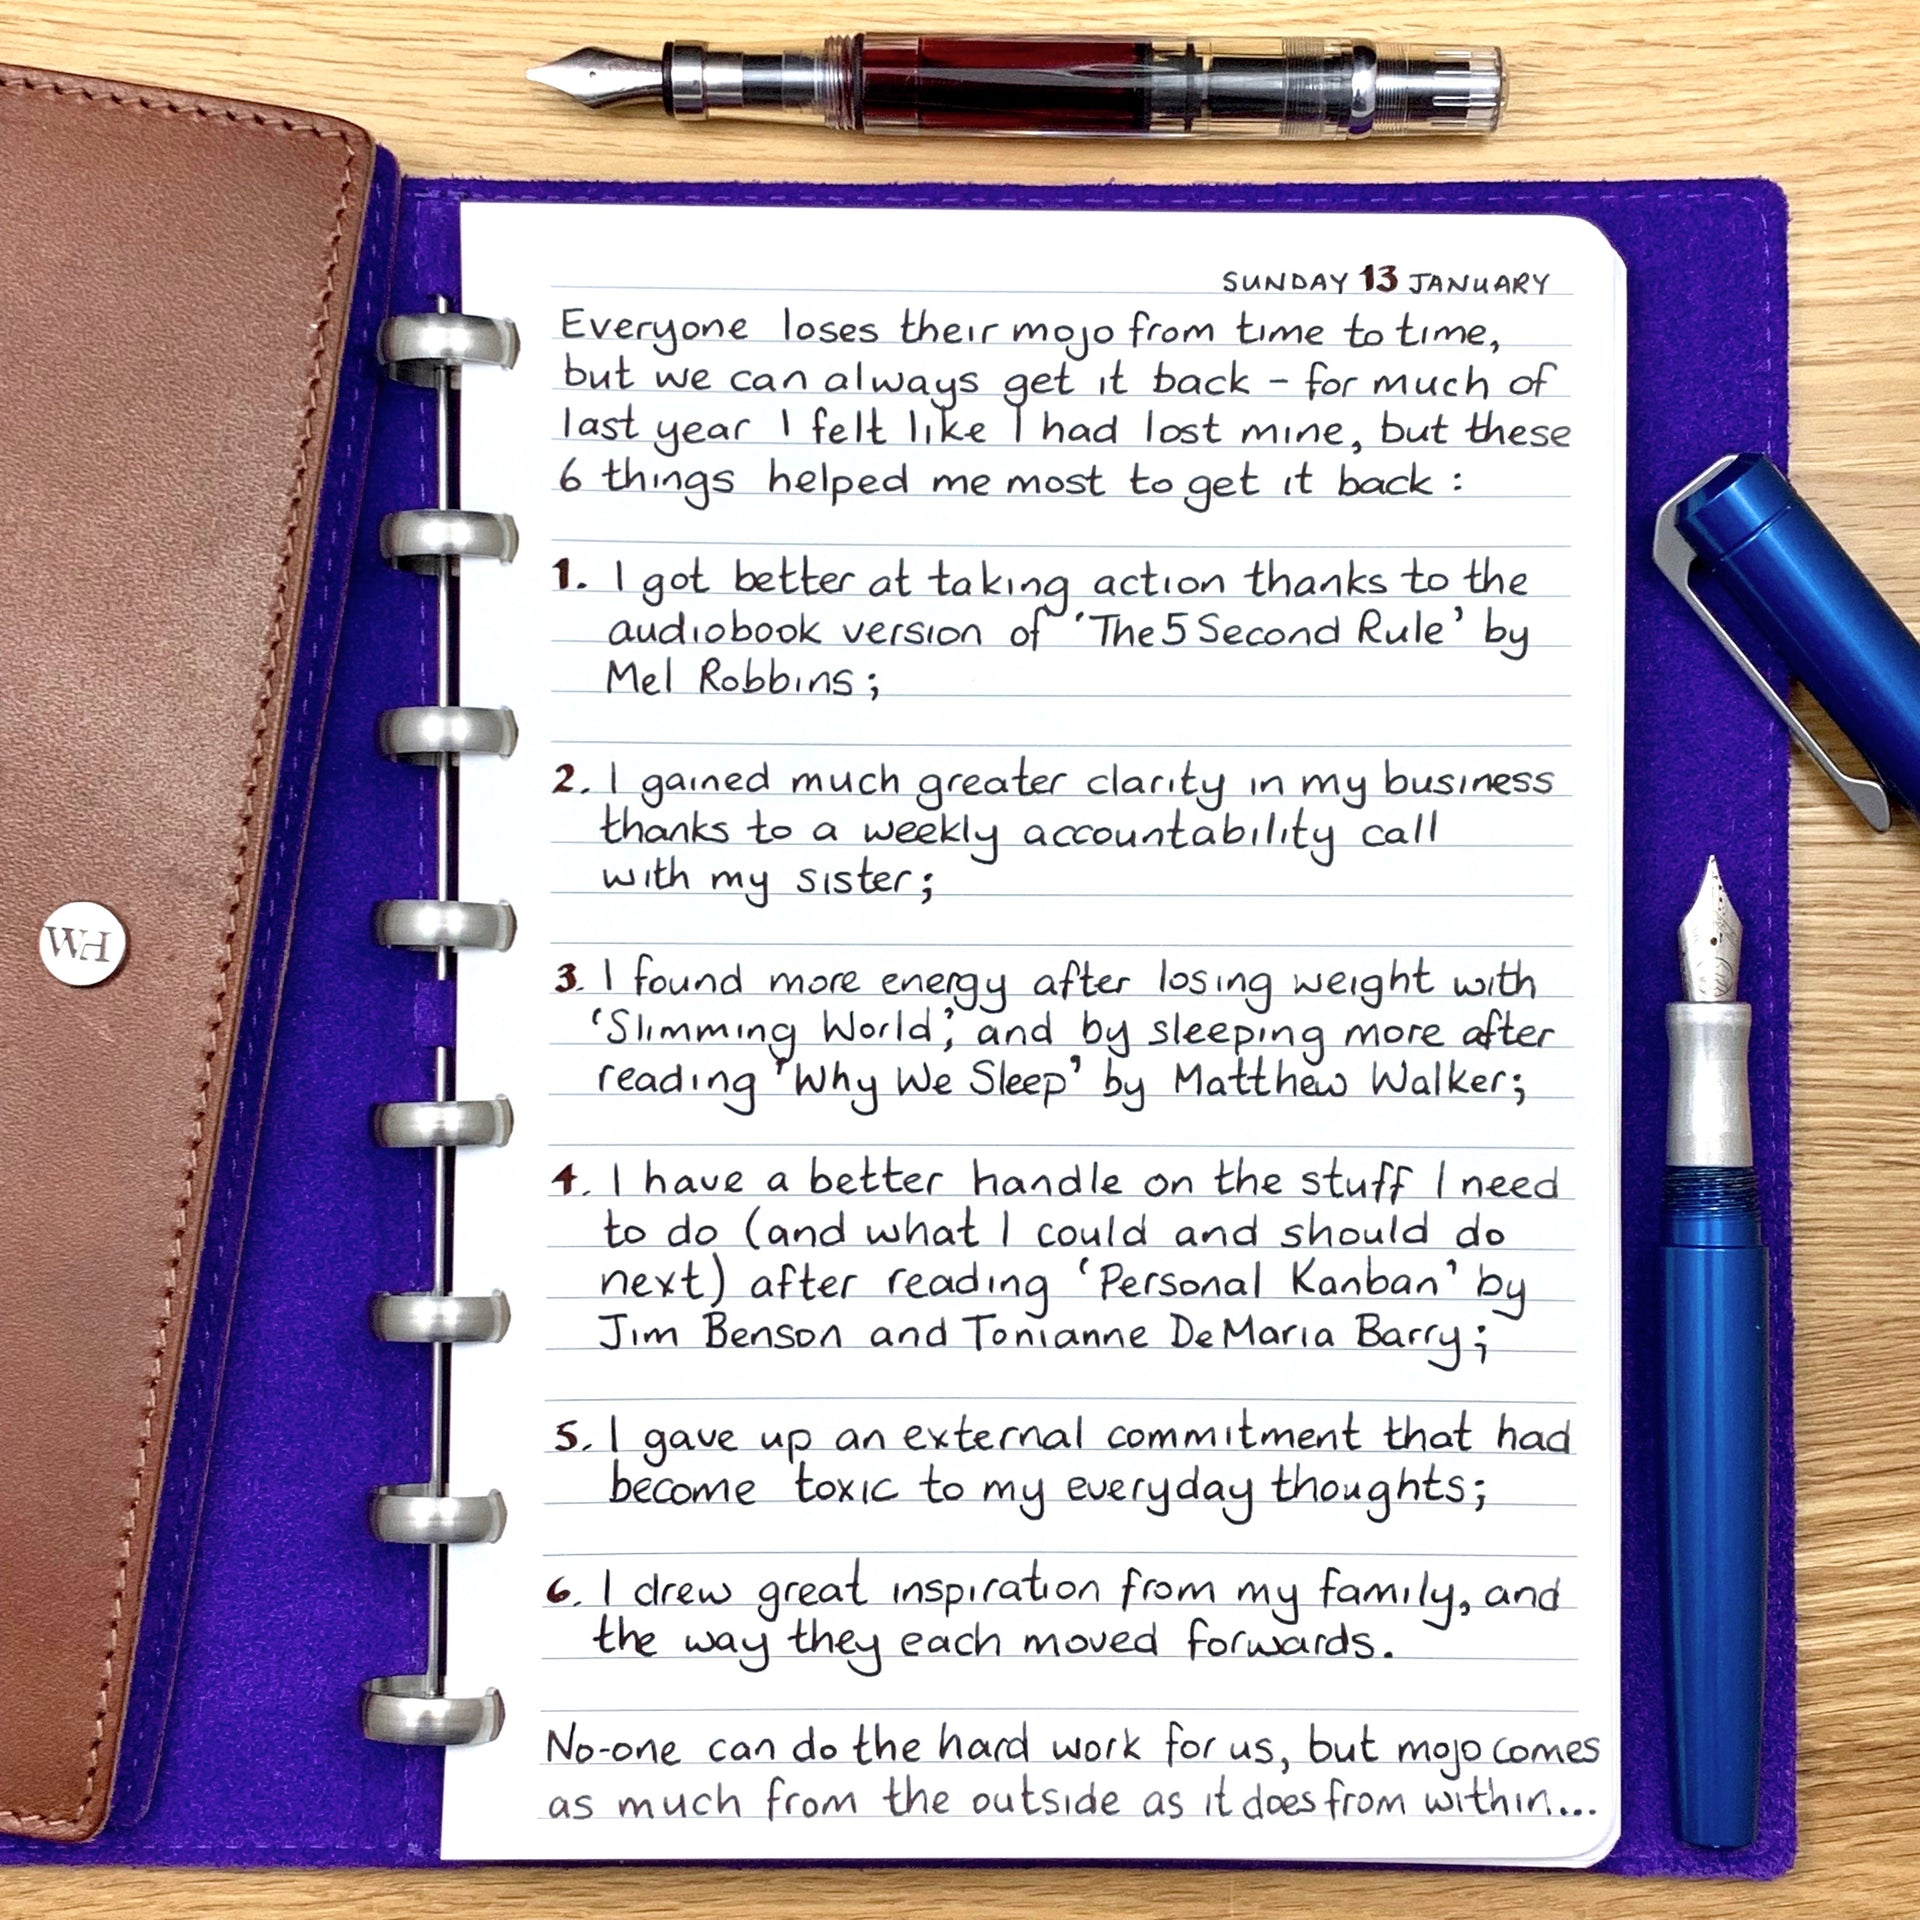 WH
SUNDAY 13 JANUARY
Everyone loses their mojo from time to time,
but we can always get it back - for much of
last year I felt like I had lost mine, but these
6 things helped me most to get it back :
1. I got better at taking action thanks to the
audiobook version of 'The 5 Second Rule' by
Mel Robbins;
2. I gained much greater clarity in my business
thanks to a weekly accountability call
with my sister;
3. I found more energy after losing weight with
'Slimming World', and by sleeping more after
reading 'Why We Sleep' by Matthew Walker;
4. I have a better handle on the stuff I need
to do (and what I could and should do
next) after reading 'Personal Kanban' by
Jim Benson and Tonianne DeMaria Barry;
5. I gave up an external commitment that had
become toxic to my everyday thoughts;
6. I drew great inspiration from my family, and
the way they each moved forwards.
No-one can do the hard work for us, but mojo comes
as much from the outside as it does from within...